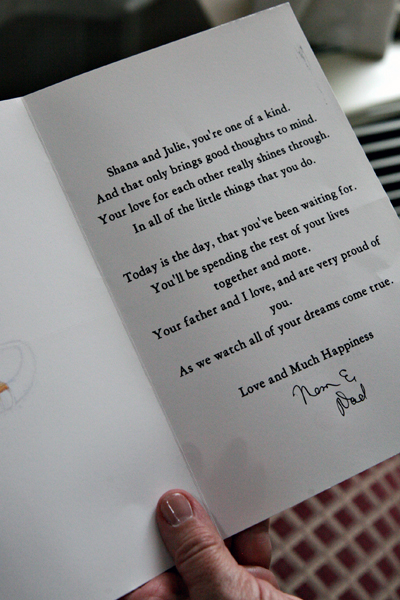 Shana and Julie, you're one of a kind.
And that only brings good thoughts to mind.
Your love for each other really shines through.
In all of the little things that you do.
Today is the day, that you've been waiting for.
You'll be spending the rest of your lives
together and more.
Your father and I love, and are very proud of
you.
As we watch all of your dreams come true.
Love and Much Happiness
Mom &
Dad